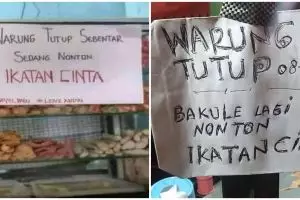 WARUNG TUTUP SEBENTAR
SEDANG NONTON
IKATAN CINTA
WARUNG
TUTUP
BAKULE LAGI
NONTON
IKATAN